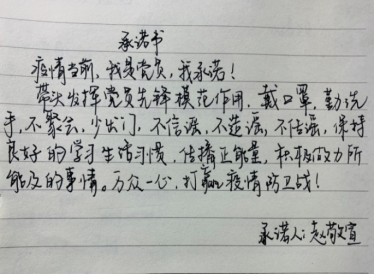 承诺书
疫情当前,我是党员,我承诺!
带头发挥党员先锋模范作用,戴口罩,勤洗
手,不聚会,少出门,不信谣,不造谣,不传谣,保持
良好的学习生活习惯,传播正能量,积极做力所
能及的事情。万众一心,打赢疫情防卫战!
承诺人:赵敬宣